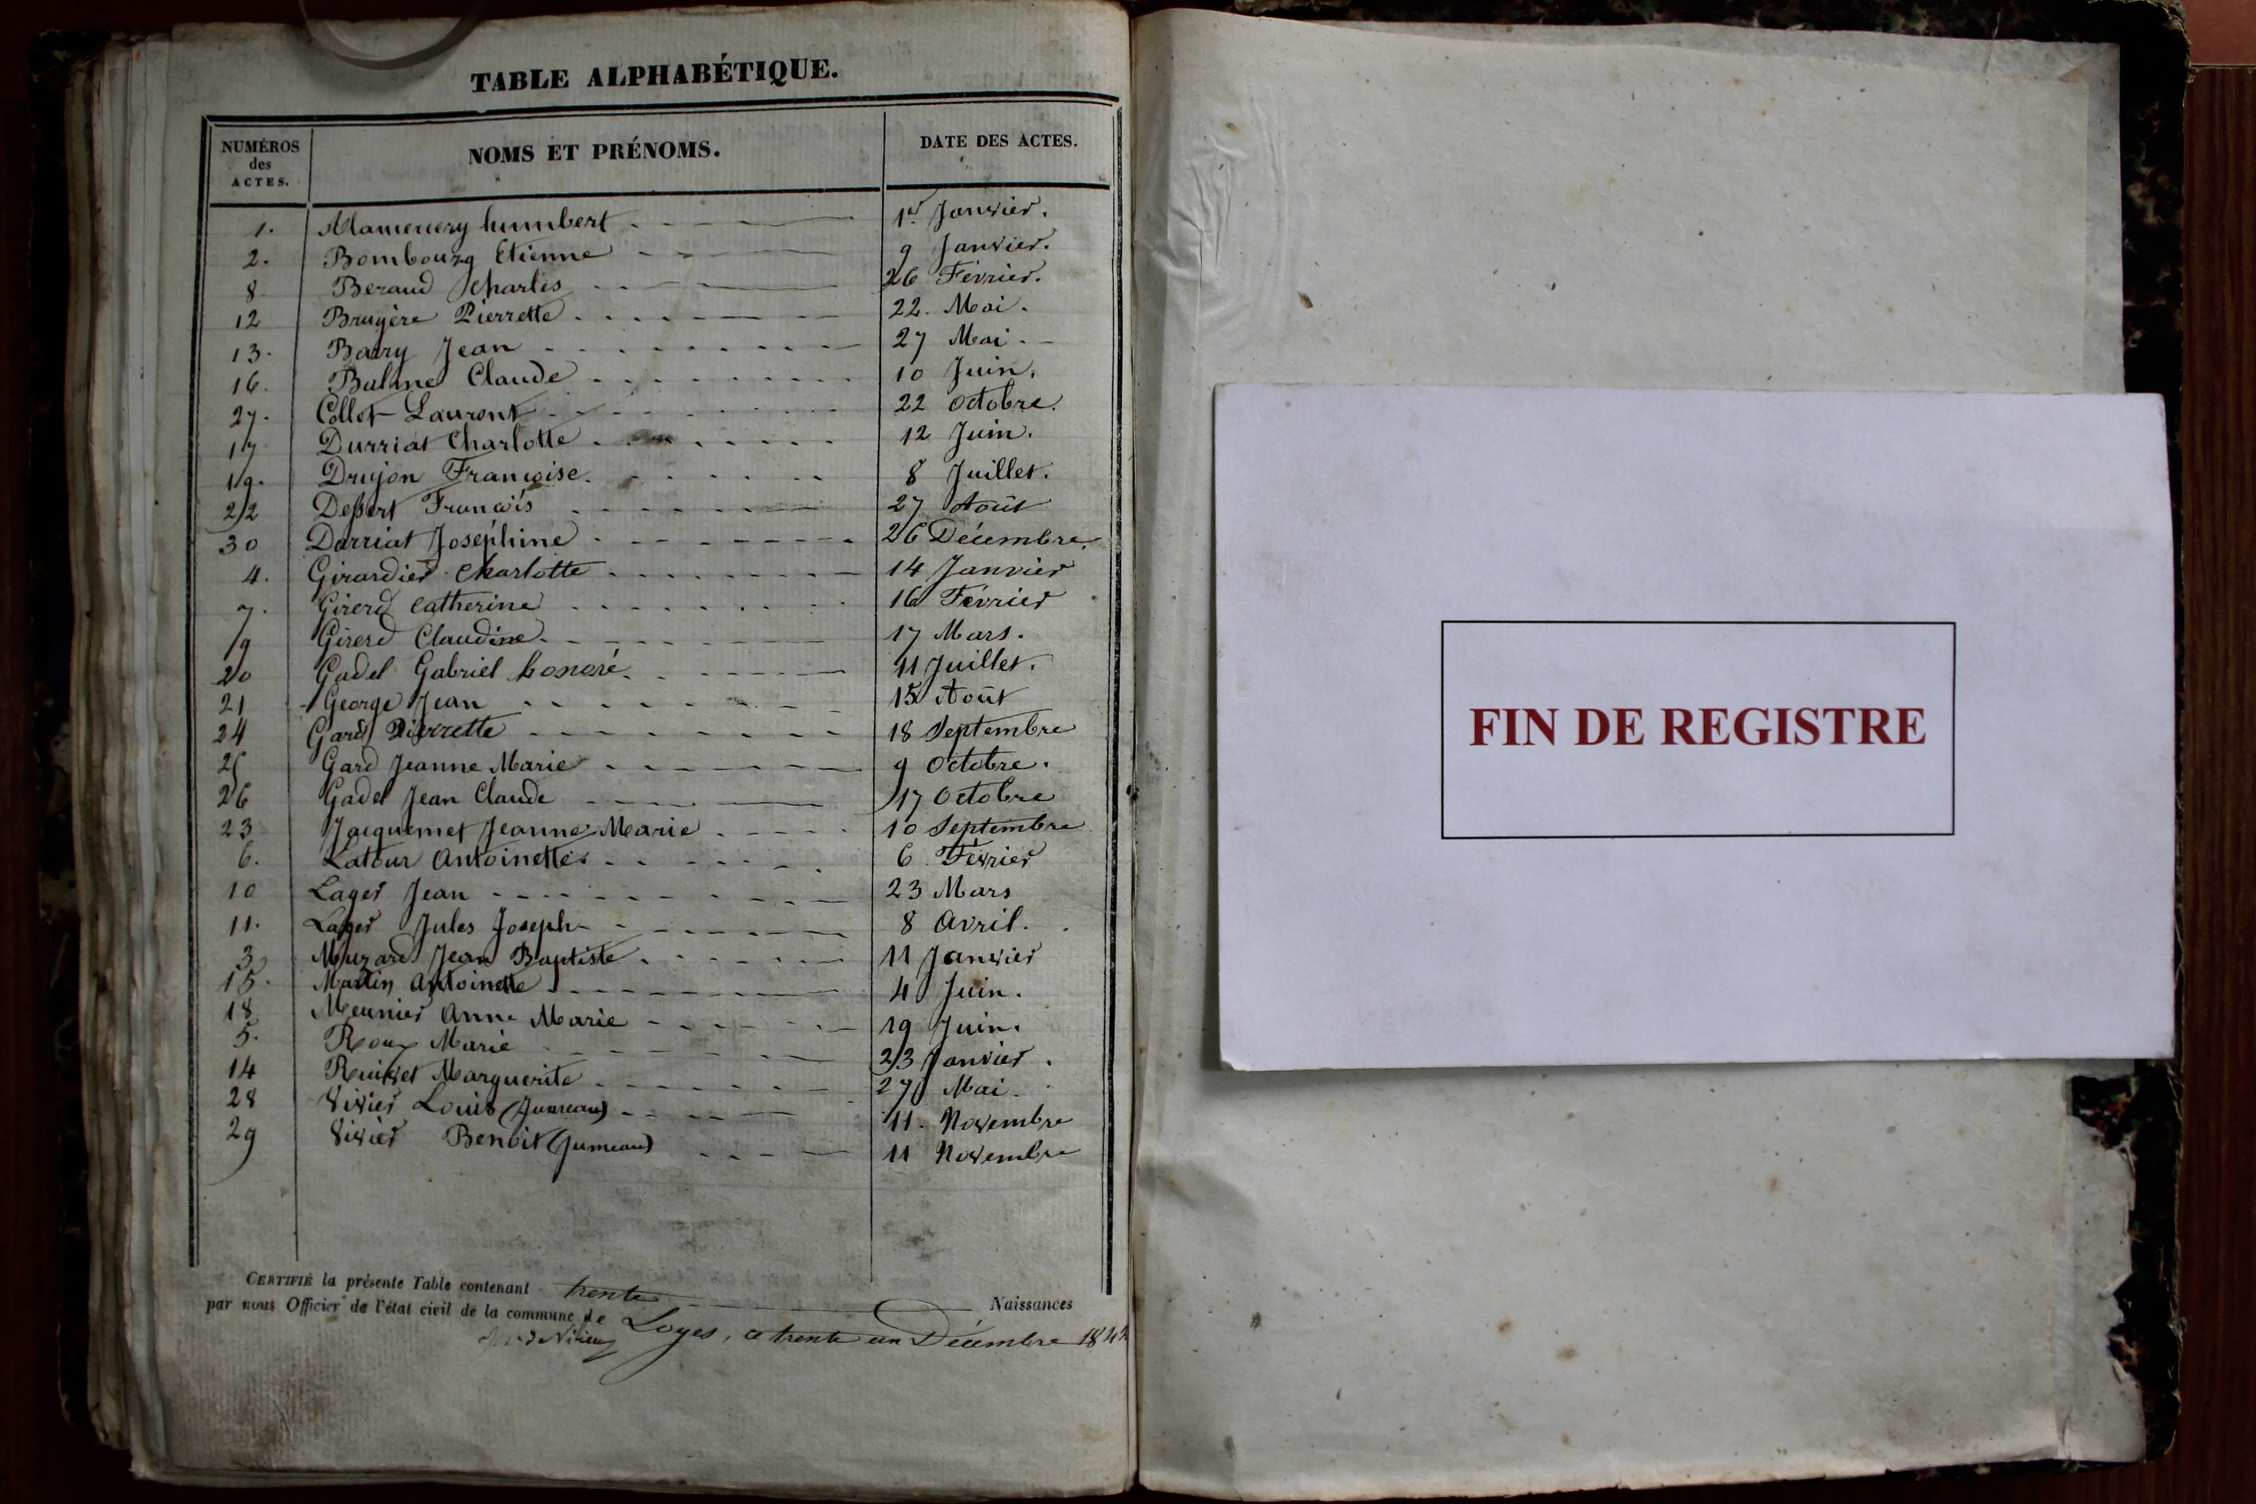 TABLE ALPHABÉTIQUE.
NUMÉROS des ACTES. NOMS ET PRÉNOMS. DATE DES ACTES.
1. humbert 1er Janvier.
2. Bombourg Etienne 9 Janvier.
8 Beraud Charles 26 Février.
12 Bruyère Pierrette 22. Mai.
13. Barry Jean 27 Mai.
16. Balme Claude 10 Juin.
27. Collet Laurent 22 Octobre.
17 Durriat Charlotte 12 Juin.
19. Drujon Francoise. 8 Juillet.
22 Francois 27 Août
30 Darriat Joséphine 26 Décembre.
4. Girardier Charlotte 14 Janvier
7. Girerd Catherine 16 Février
9 Girerd Claudine. 17 Mars.
20 Gadel Gabriel honoré. 11 Juillet.
21 George Jean 15 Août
24 Gard Pierrette 18 Septembre
25 Gard Jeanne Marie 9 Octobre.
26 Gadel Jean Claude 17 Octobre
23 Jacquemet Jeanne Marie 10 Septembre
6. Latour Antoinette 6 Février
10 Lager Jean 23 Mars
11. Lager Jules Joseph 8 Avril.
3 Muzard Jean Baptiste 11 Janvier
15. Martin Antoinette 4 Juin.
18 Meunier Anne Marie 19 Juin.
5. Roux Marie 23 Janvier.
14 Marguerite 27 Mai.
28 Vivier Louis (Jumeau) 11. Novembre
29 Vivier Benoit (Jumeau) 11 Novembre
CERTIFIÉ la présente Table contenant trente Naissances
par nous Officier de l'état civil de la commune de Loyes, ce trente un Décembre
FIN DE REGISTRE